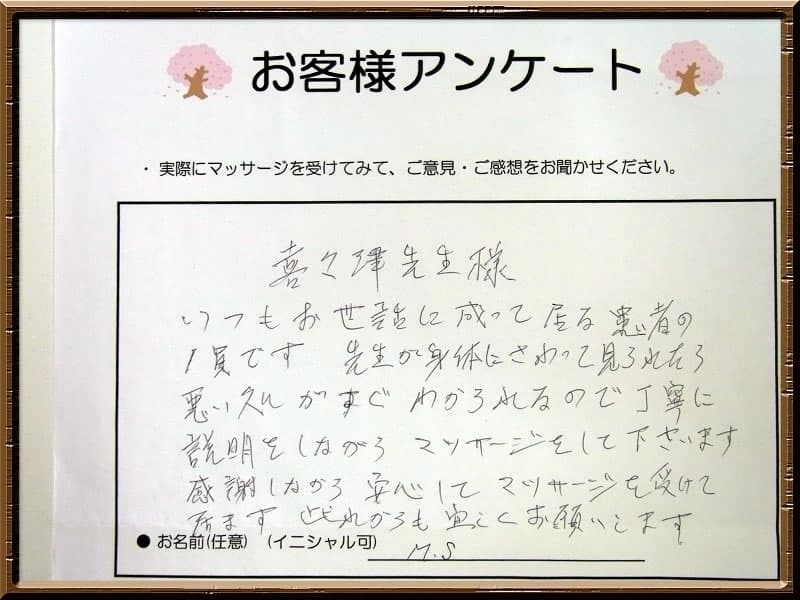 お客様アンケート
・ 実際にマッサージを受けてみて、ご意見・ご感想をお聞かせください。
喜々津先生様
いつもお世話に成って居る患者の
1員です 先生が身体にさわって見られたら
悪い処がすぐわかられるので丁寧に
説明をしながらマッサージをして下さいます
感謝しながら安心してマッサージを受けて
居ます 此れからも宜しくお願いします
● お名前(任意) (イニシャル可) M.S